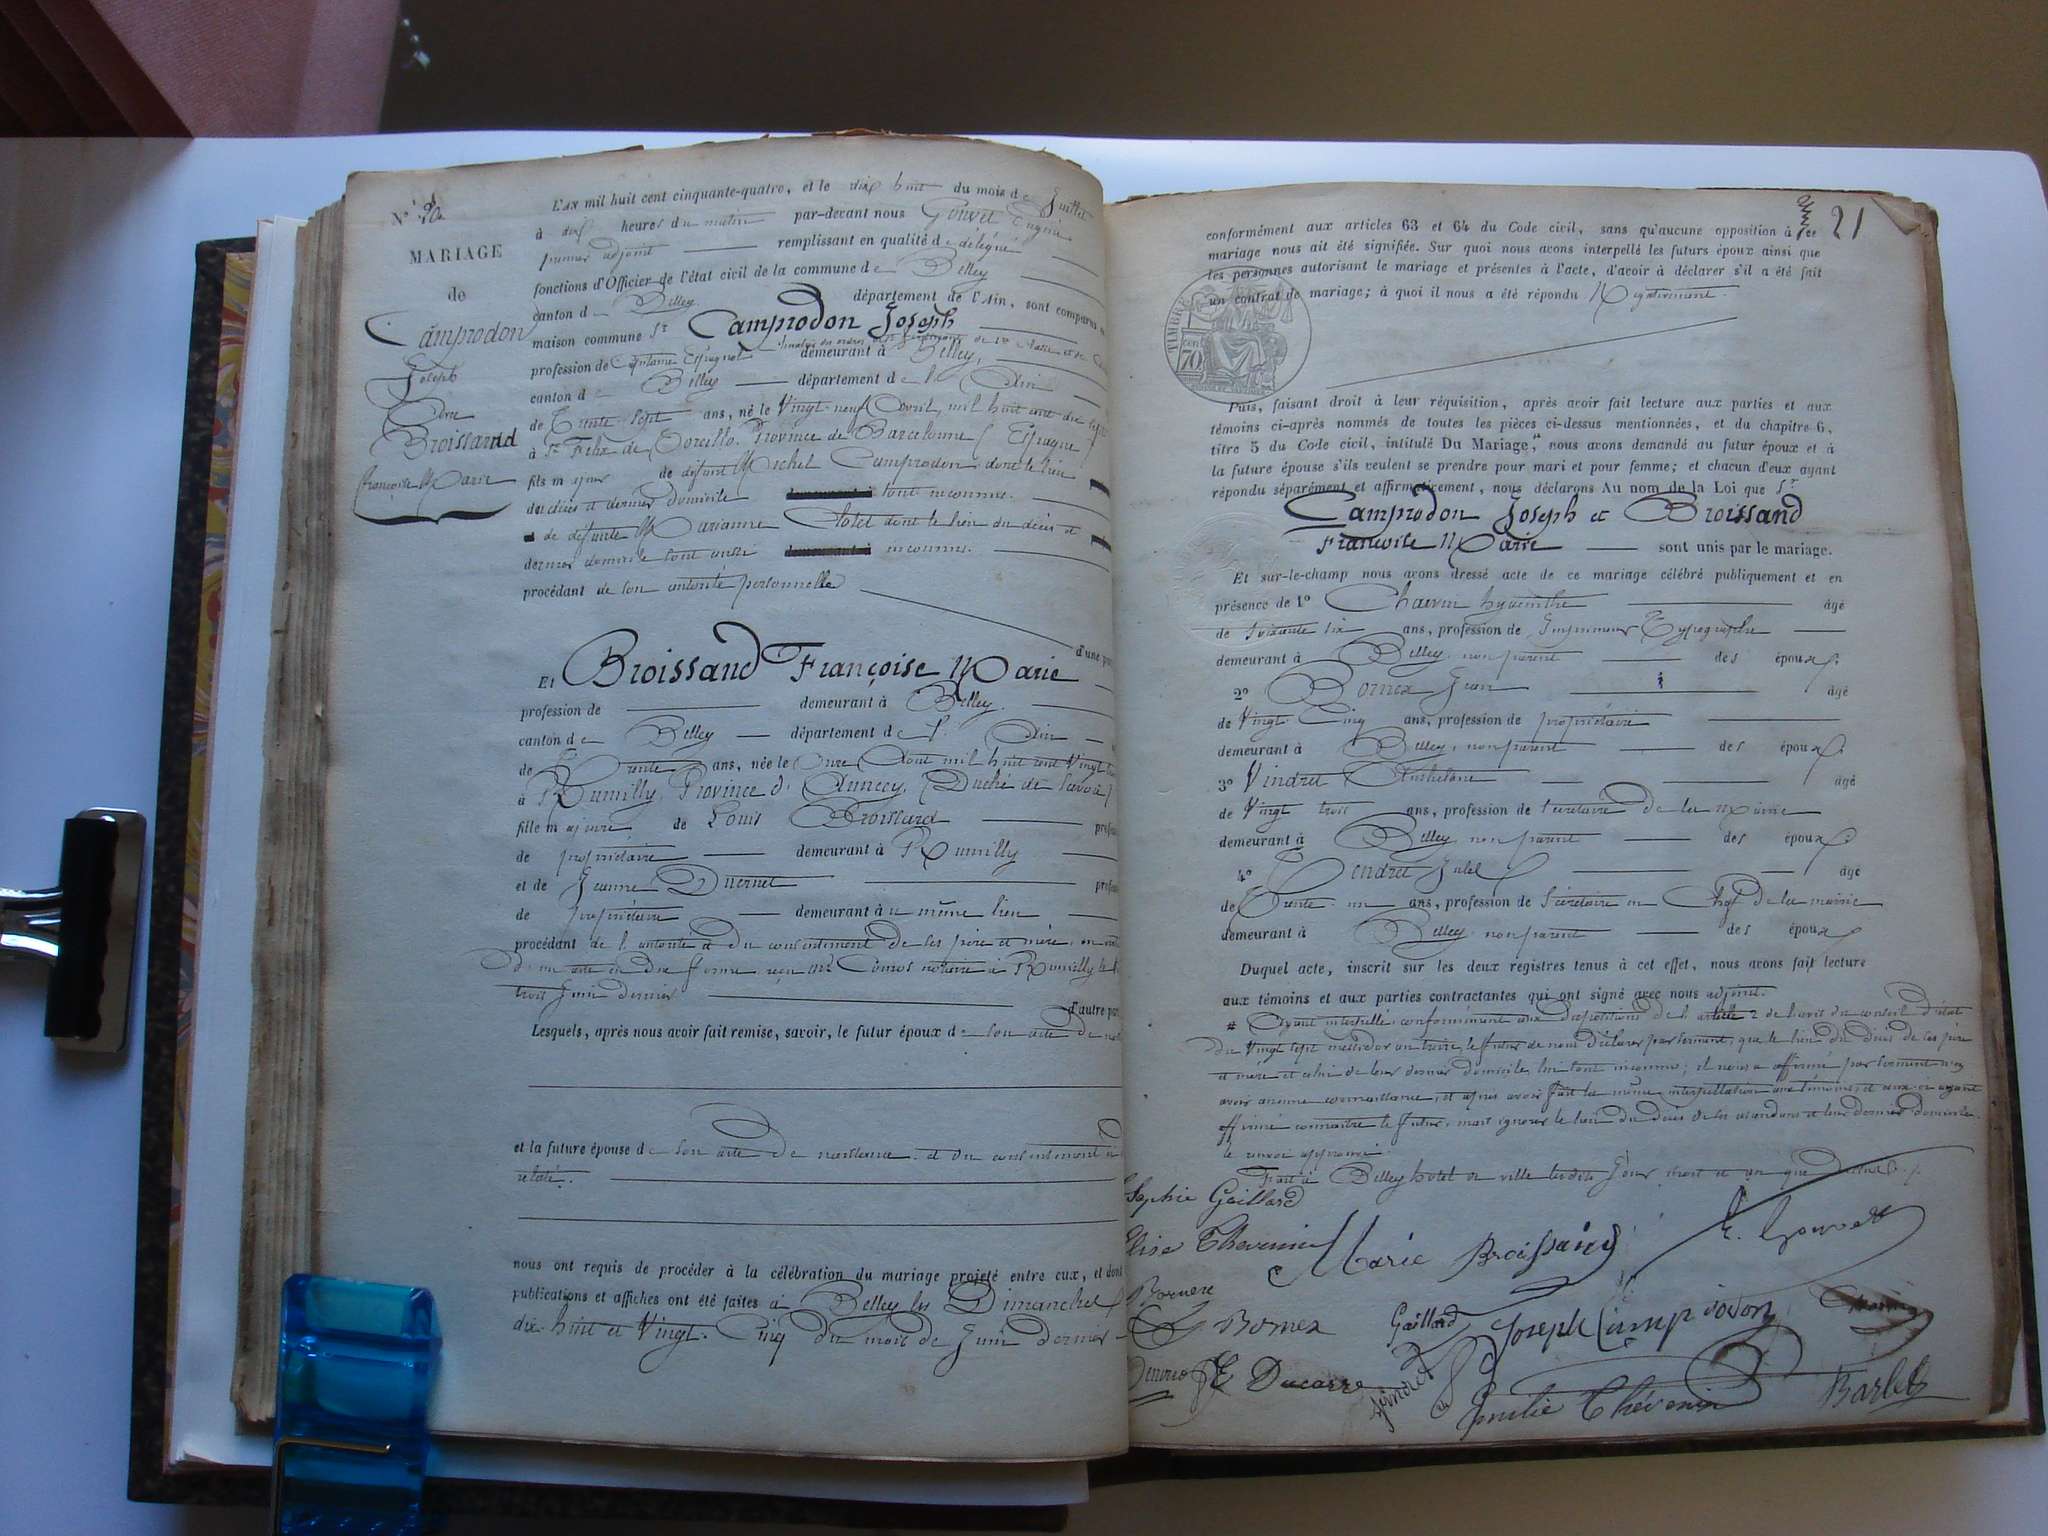 MARIAGE
de
Camprodon
Joseph
Broissand
Françoise Marie
L'AN mil huit cent cinquante-quatre, et le dix huit du mois de Juillet
à dix heures du matin par-devant nous Gouvet Eugène
premier adjoint remplissant en qualité de délégué
fonctions d'Officier de l'état civil de la commune de Belley
canton de Belley département de l'Ain, sont comparus
maison commune Sr Camprodon Joseph
profession de Capitaine Espagnol demeurant à Belley,
canton de Belley département de l'Ain
de Trente Sept ans, né le Vingt neuf Avril mil huit cent dix sept
à St Felix de Torcillo Province de Barcelonne (Espagne)
fils majeur de défunt Michel Camprodon dont le lieu
du décès et dernier domicile sont inconnus.
de défunte Marianne Clotet dont le lieu du décès et
dernier domicile sont aussi inconnus.
procédant de son autorité personnelle
d'une part
Et Broissand Françoise Marie
profession de demeurant à Belley.
canton de Belley département de l'Ain
de Trente ans, née le Onze Aout mil huit cent Vingt
à Rumilly, Province d'Annecy, (Duché de Savoie)
fille majeure de Louis Broissand
de propriétaire demeurant à Rumilly
et de Jeanne Duernet
de propriétaire demeurant à u même lieu
procédant de l'autorité et du consentement de ses père et mère, en
d'un acte en due forme, reçu Me notaire à Rumilly le
trois Juin dernier
d'autre part
Lesquels, après nous avoir fait remise, savoir, le futur époux de son acte de
et la future épouse de son acte de naissance et du consentement
relaté.
nous ont requis de procéder à la célébration du mariage projeté entre eux, et dont
publications et affiches ont été faites à Belley les Dimanches
dix-huit et Vingt-Cinq du mois de Juin dernier
21
conformément aux articles 63 et 64 du Code civil, sans qu'aucune opposition à ce
mariage nous ait été signifiée. Sur quoi nous avons interpellé les futurs époux ainsi que
les personnes autorisant le mariage et présentes à l'acte, d'avoir à déclarer s'il a été fait
un contrat de mariage; à quoi il nous a été répondu Négativement.
TIMBRE
70 cent
Puis, faisant droit à leur réquisition, après avoir fait lecture aux parties et aux
témoins ci-après nommés de toutes les pièces ci-dessus mentionnées, et du chapitre 6,
titre 5 du Code civil, intitulé Du Mariage, nous avons demandé au futur époux et à
la future épouse s'ils veulent se prendre pour mari et pour femme; et chacun d'eux ayant
répondu séparément et affirmativement, nous déclarons Au nom de la Loi que Sr
Camprodon Joseph et Broissand
Françoise Marie sont unis par le mariage.
Et sur-le-champ nous avons dressé acte de ce mariage célébré publiquement et en
présence de 1º Charvin hyacinthe âgé
de soixante six ans, profession de Imprimeur Typographe
demeurant à Belley, non parent des époux.
2º Bornex Jean âgé
de Vingt Cinq ans, profession de propriétaire
demeurant à Belley, non parent des époux.
3º Vindret Anthelme âgé
de Vingt trois ans, profession de secrétaire de la Mairie
demeurant à Belley, non parent des époux.
4º Jules âgé
de Trente un ans, profession de Secrétaire en Chef de la mairie
demeurant à Belley, non parent des époux
Duquel acte, inscrit sur les deux registres tenus à cet effet, nous avons fait lecture
aux témoins et aux parties contractantes qui ont signé avec nous adjoint.
# Ayant interpellé, conformément aux dispositions de l'article 2 de l'avis du conseil d'état
du Vingt sept messidor an treize, le futur de nous déclarer par serment, que le lieu du décès de ses père
et mère et celui de leur dernier domicile lui sont inconnus; il nous a affirmé par serment n'en
avoir aucune connaissance, et après avoir fait la même interpellation aux témoins, et ceux-ci ayant
affirmé connaître le futur, mais ignorer le lieu du décès de ses ascendans et leur dernier domicile.
le renvoi approuvé.
Fait à Belley hotel de ville lesdits Jour, mois et an que dessus.
Sophie Gaillard
Elise Thevenin
Marie Broissand
E. Gouvet
Bornex
Gaillard
Joseph Camprodon
E Ducarre
Vindret
Emilie Thévenin
Barlet